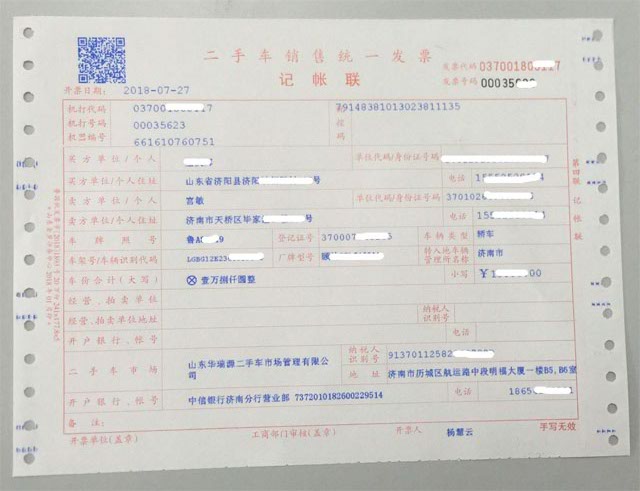 二手车销售统一发票
记帐联
发票代码 037001800 17
发票号码 00035
开票日期: 2018-07-27
机打代码 03700 17
机打号码 00035623
机器编号 661610760751
税控码 79148381013023811135
买方单位/个人 单位代码/身份证号码
买方单位/个人住址 山东省济阳县济阳 号 电话
卖方单位/个人 宫敏 单位代码/身份证号码 3701026
卖方单位/个人住址 济南市天桥区毕家 号 电话 15
车牌照号 鲁A 9 登记证号 370007 车辆类型 轿车
车架号/车辆识别代码 LGBG12E23 厂牌型号 转入地车辆管理所名称 济南市
车价合计(大写) ⊗壹万捌仟圆整 小写 ￥1 00
经营、拍卖单位
经营、拍卖单位地址 纳税人识别号
开户银行、帐号 电话
二手车市场 山东华瑞源二手车市场管理有限公司 纳税人识别号 91370112582
地址 济南市历城区航运路中段明福大厦一楼B5,B6室
开户银行、帐号 中信银行济南分行营业部 7372010182600229514 电话 1865
备注:
开票单位(盖章) 工商部门审相(盖章) 开票人 杨慧云 手写无效
第四联 记帐联